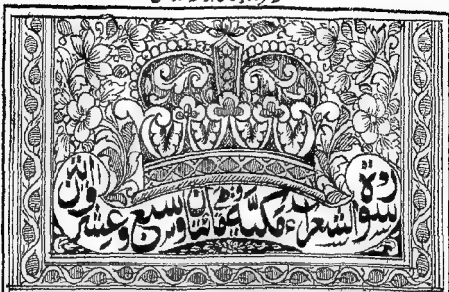 سورة الشعراء مكية وهى مائتان وسبع وعشرون آية